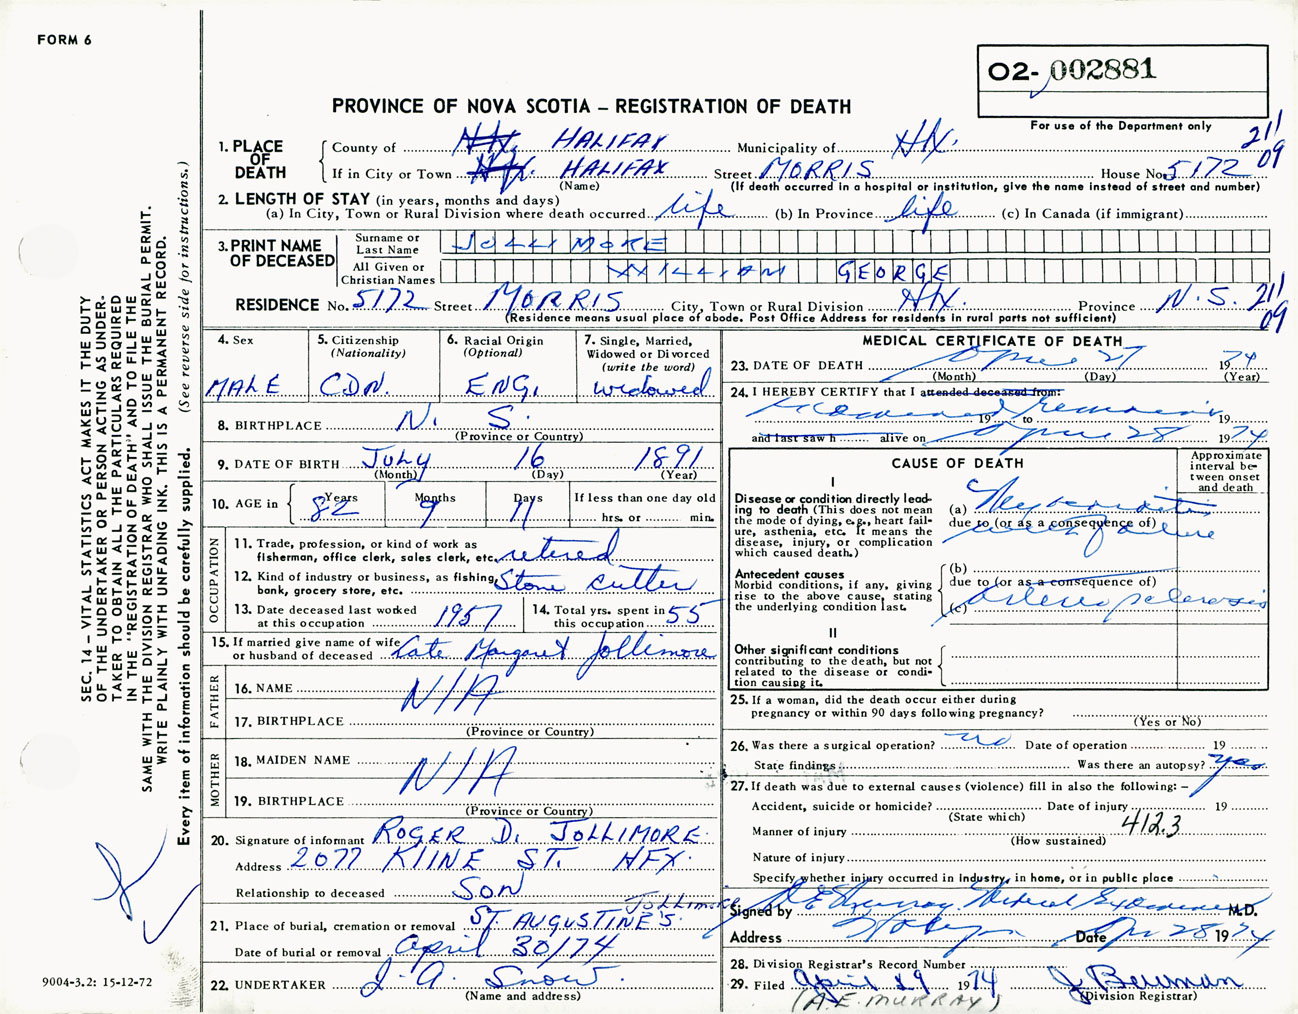 FORM 6
O2- 002881
PROVINCE OF NOVA SCOTIA – REGISTRATION OF DEATH
For use of the Department only
211
09
1. PLACE OF DEATH
County of HALIFAX Municipality of HX.
If in City or Town HALIFAX Street MORRIS House No. 5172
(Name) (If death occurred in a hospital or institution, give the name instead of street and number)
2. LENGTH OF STAY (in years, months and days)
(a) In City, Town or Rural Division where death occurred life (b) In Province life (c) In Canada (if immigrant)
3. PRINT NAME OF DECEASED
Surname or Last Name JOLLIMORE
All Given or Christian Names WILLIAM GEORGE
RESIDENCE No. 5172 Street MORRIS City, Town or Rural Division HX. Province N.S. 211
09
(Residence means usual place of abode. Post Office Address for residents in rural parts not sufficient)
4. Sex
MALE
5. Citizenship
(Nationality)
CDN.
6. Racial Origin
(Optional)
ENG.
7. Single, Married,
Widowed or Divorced
(write the word)
widowed
8. BIRTHPLACE N. S.
(Province or Country)
9. DATE OF BIRTH July 16 1891
(Month) (Day) (Year)
10. AGE in Years Months Days If less than one day old
82 9 11 hrs. or min.
OCCUPATION
11. Trade, profession, or kind of work as
fisherman, office clerk, sales clerk, etc. retired
12. Kind of industry or business, as fishing,
bank, grocery store, etc. Stone cutter
13. Date deceased last worked
at this occupation 1957
14. Total yrs. spent in
this occupation 55
15. If married give name of wife
or husband of deceased Late Margaret Jollimore
FATHER
16. NAME N/A
17. BIRTHPLACE
(Province or Country)
MOTHER
18. MAIDEN NAME N/A
19. BIRTHPLACE
(Province or Country)
20. Signature of informant ROGER D. JOLLIMORE
Address 2077 KLINE ST. HFX.
Relationship to deceased SON
21. Place of burial, cremation or removal ST. AUGUSTINE'S Jollimore
Date of burial or removal April 30/74
22. UNDERTAKER J. A. Snow
(Name and address)
MEDICAL CERTIFICATE OF DEATH
23. DATE OF DEATH April 27 1974
(Month) (Day) (Year)
24. I HEREBY CERTIFY that I attended deceased from:
examined 19 to remains 19
and last saw h alive on April 28 1974
CAUSE OF DEATH
Approximate
interval be-
tween onset
and death
I
Disease or condition directly lead-
ing to death (This does not mean
the mode of dying, e.g., heart fail-
ure, asthenia, etc. It means the
disease, injury, or complication
which caused death.)
(a) Myocarditis
due to (or as a consequence of)
with failure
Antecedent causes
Morbid conditions, if any, giving
rise to the above cause, stating
the underlying condition last.
(b)
due to (or as a consequence of)
(c) arterio sclerosis
II
Other significant conditions
contributing to the death, but not
related to the disease or condi-
tion causing it.
25. If a woman, did the death occur either during
pregnancy or within 90 days following pregnancy?
(Yes or No)
26. Was there a surgical operation? no Date of operation 19
State findings Was there an autopsy? yes
27. If death was due to external causes (violence) fill in also the following: –
Accident, suicide or homicide? Date of injury 19
(State which)
Manner of injury 412.3
(How sustained)
Nature of injury
Specify whether injury occurred in industry, in home, or in public place
Signed by A E Murray Medical Examiner M.D.
Address Date Apr 28 1974
28. Division Registrar's Record Number
29. Filed April 29 1974 J Berman
(A.E. MURRAY) (Division Registrar)
SEC. 14 – VITAL STATISTICS ACT MAKES IT THE DUTY
OF THE UNDERTAKER OR PERSON ACTING AS UNDER-
TAKER TO OBTAIN ALL THE PARTICULARS REQUIRED
IN THE "REGISTRATION OF DEATH" AND TO FILE THE
SAME WITH THE DIVISION REGISTRAR WHO SHALL ISSUE THE BURIAL PERMIT.
WRITE PLAINLY WITH UNFADING INK. THIS IS A PERMANENT RECORD.
Every item of information should be carefully supplied. (See reverse side for instructions.)
9004-3.2: 15-12-72